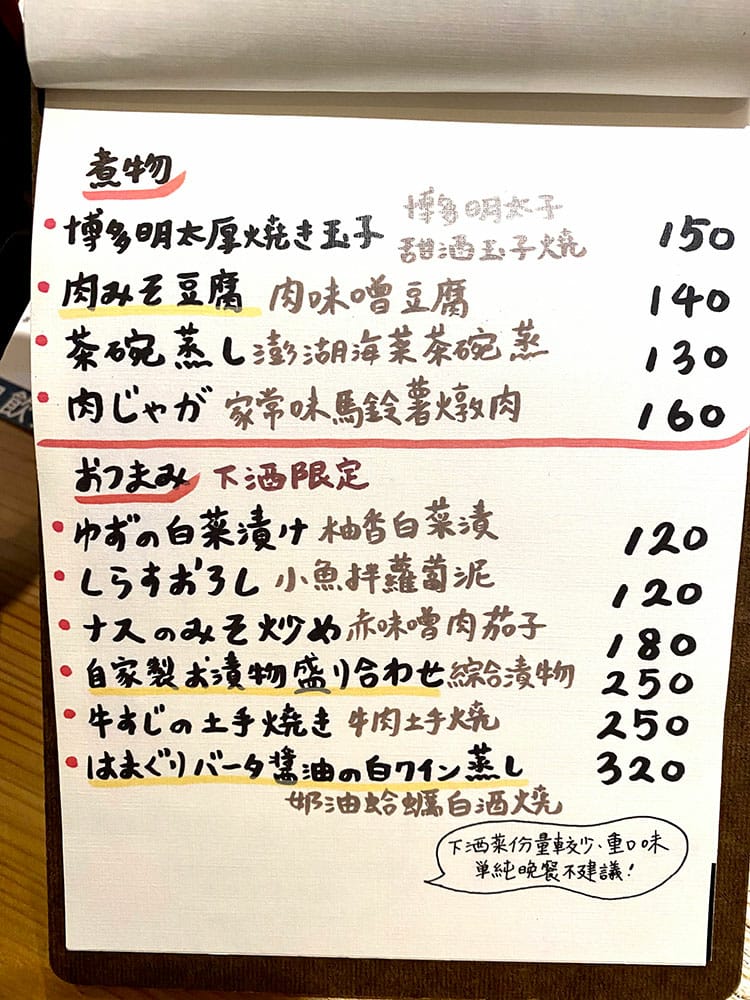 煮物
博多明太厚燒き玉子 博多明太子 甜酒玉子燒 150
肉みそ豆腐 肉味噌豆腐 140
茶碗蒸し 澎湖海菜茶碗蒸 130
肉じゃが 家常味馬鈴薯燉肉 160
おつまみ 下酒限定
ゆずの白菜漬け 柚香白菜漬 120
しらすおろし 小魚拌蘿蔔泥 120
ナスのみそ炒め 赤味噌肉茄子 180
自家製お漬物盛り合わせ 綜合漬物 250
牛すじの土手燒き 牛肉土手燒 250
はまぐりバータ醬油の白ワイン蒸し 320
奶油蛤蠣白酒燒
下酒菜份量較少、重口味
單純晚餐不建議！